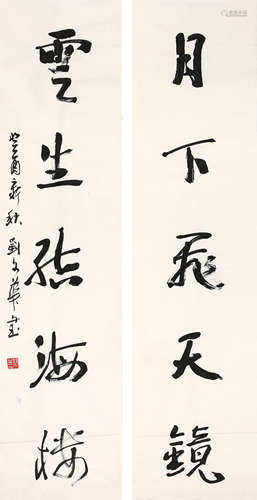 月下飛天鏡
雲生結海楼
癸酉新秋劉文華書